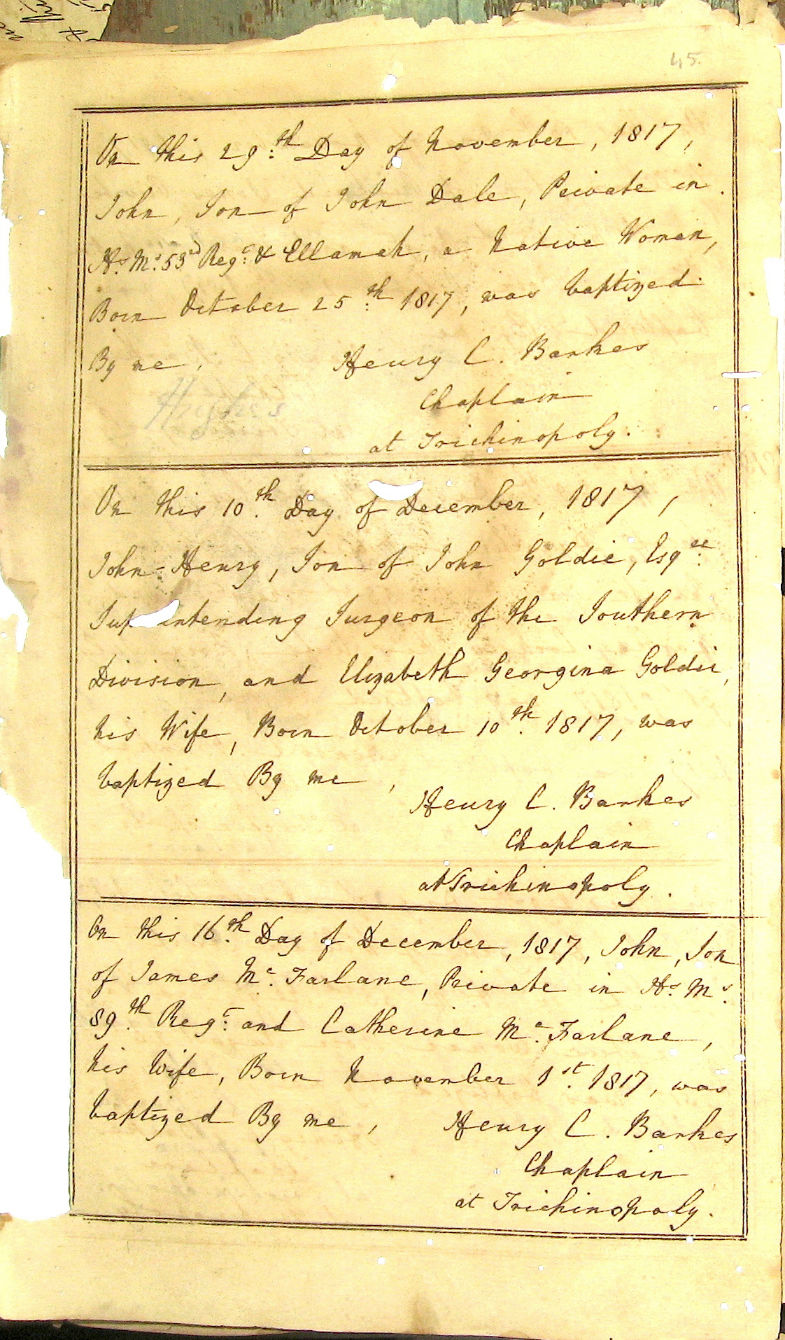 45.
On this 29.th Day of November, 1817,
John, Son of John Dale, Private in
Hs. Ms. 53d Regt. & Ellamah, a Native Woman,
Born October 25.th 1817, was baptized
By me, Henry C. Bankes
Chaplain
at Trichinopoly.
Hughes
On this 10.th Day of December, 1817,
John Henry, Son of John Goldie, Esqre.
Sup intending Surgeon of the Southern
Division, and Elizabeth Georgina Goldie,
his Wife, Born October 10.th 1817, was
baptized By me, Henry C. Bankes
Chaplain
at Trichinopoly.
On this 16.th Day of December, 1817, John, Son
of James Mc. Farlane, Private in Hs. Ms.
89.th Regt. and Catherine Mc. Farlane,
his Wife, Born November 1st. 1817, was
baptized By me, Henry C. Bankes
Chaplain
at Trichinopoly.